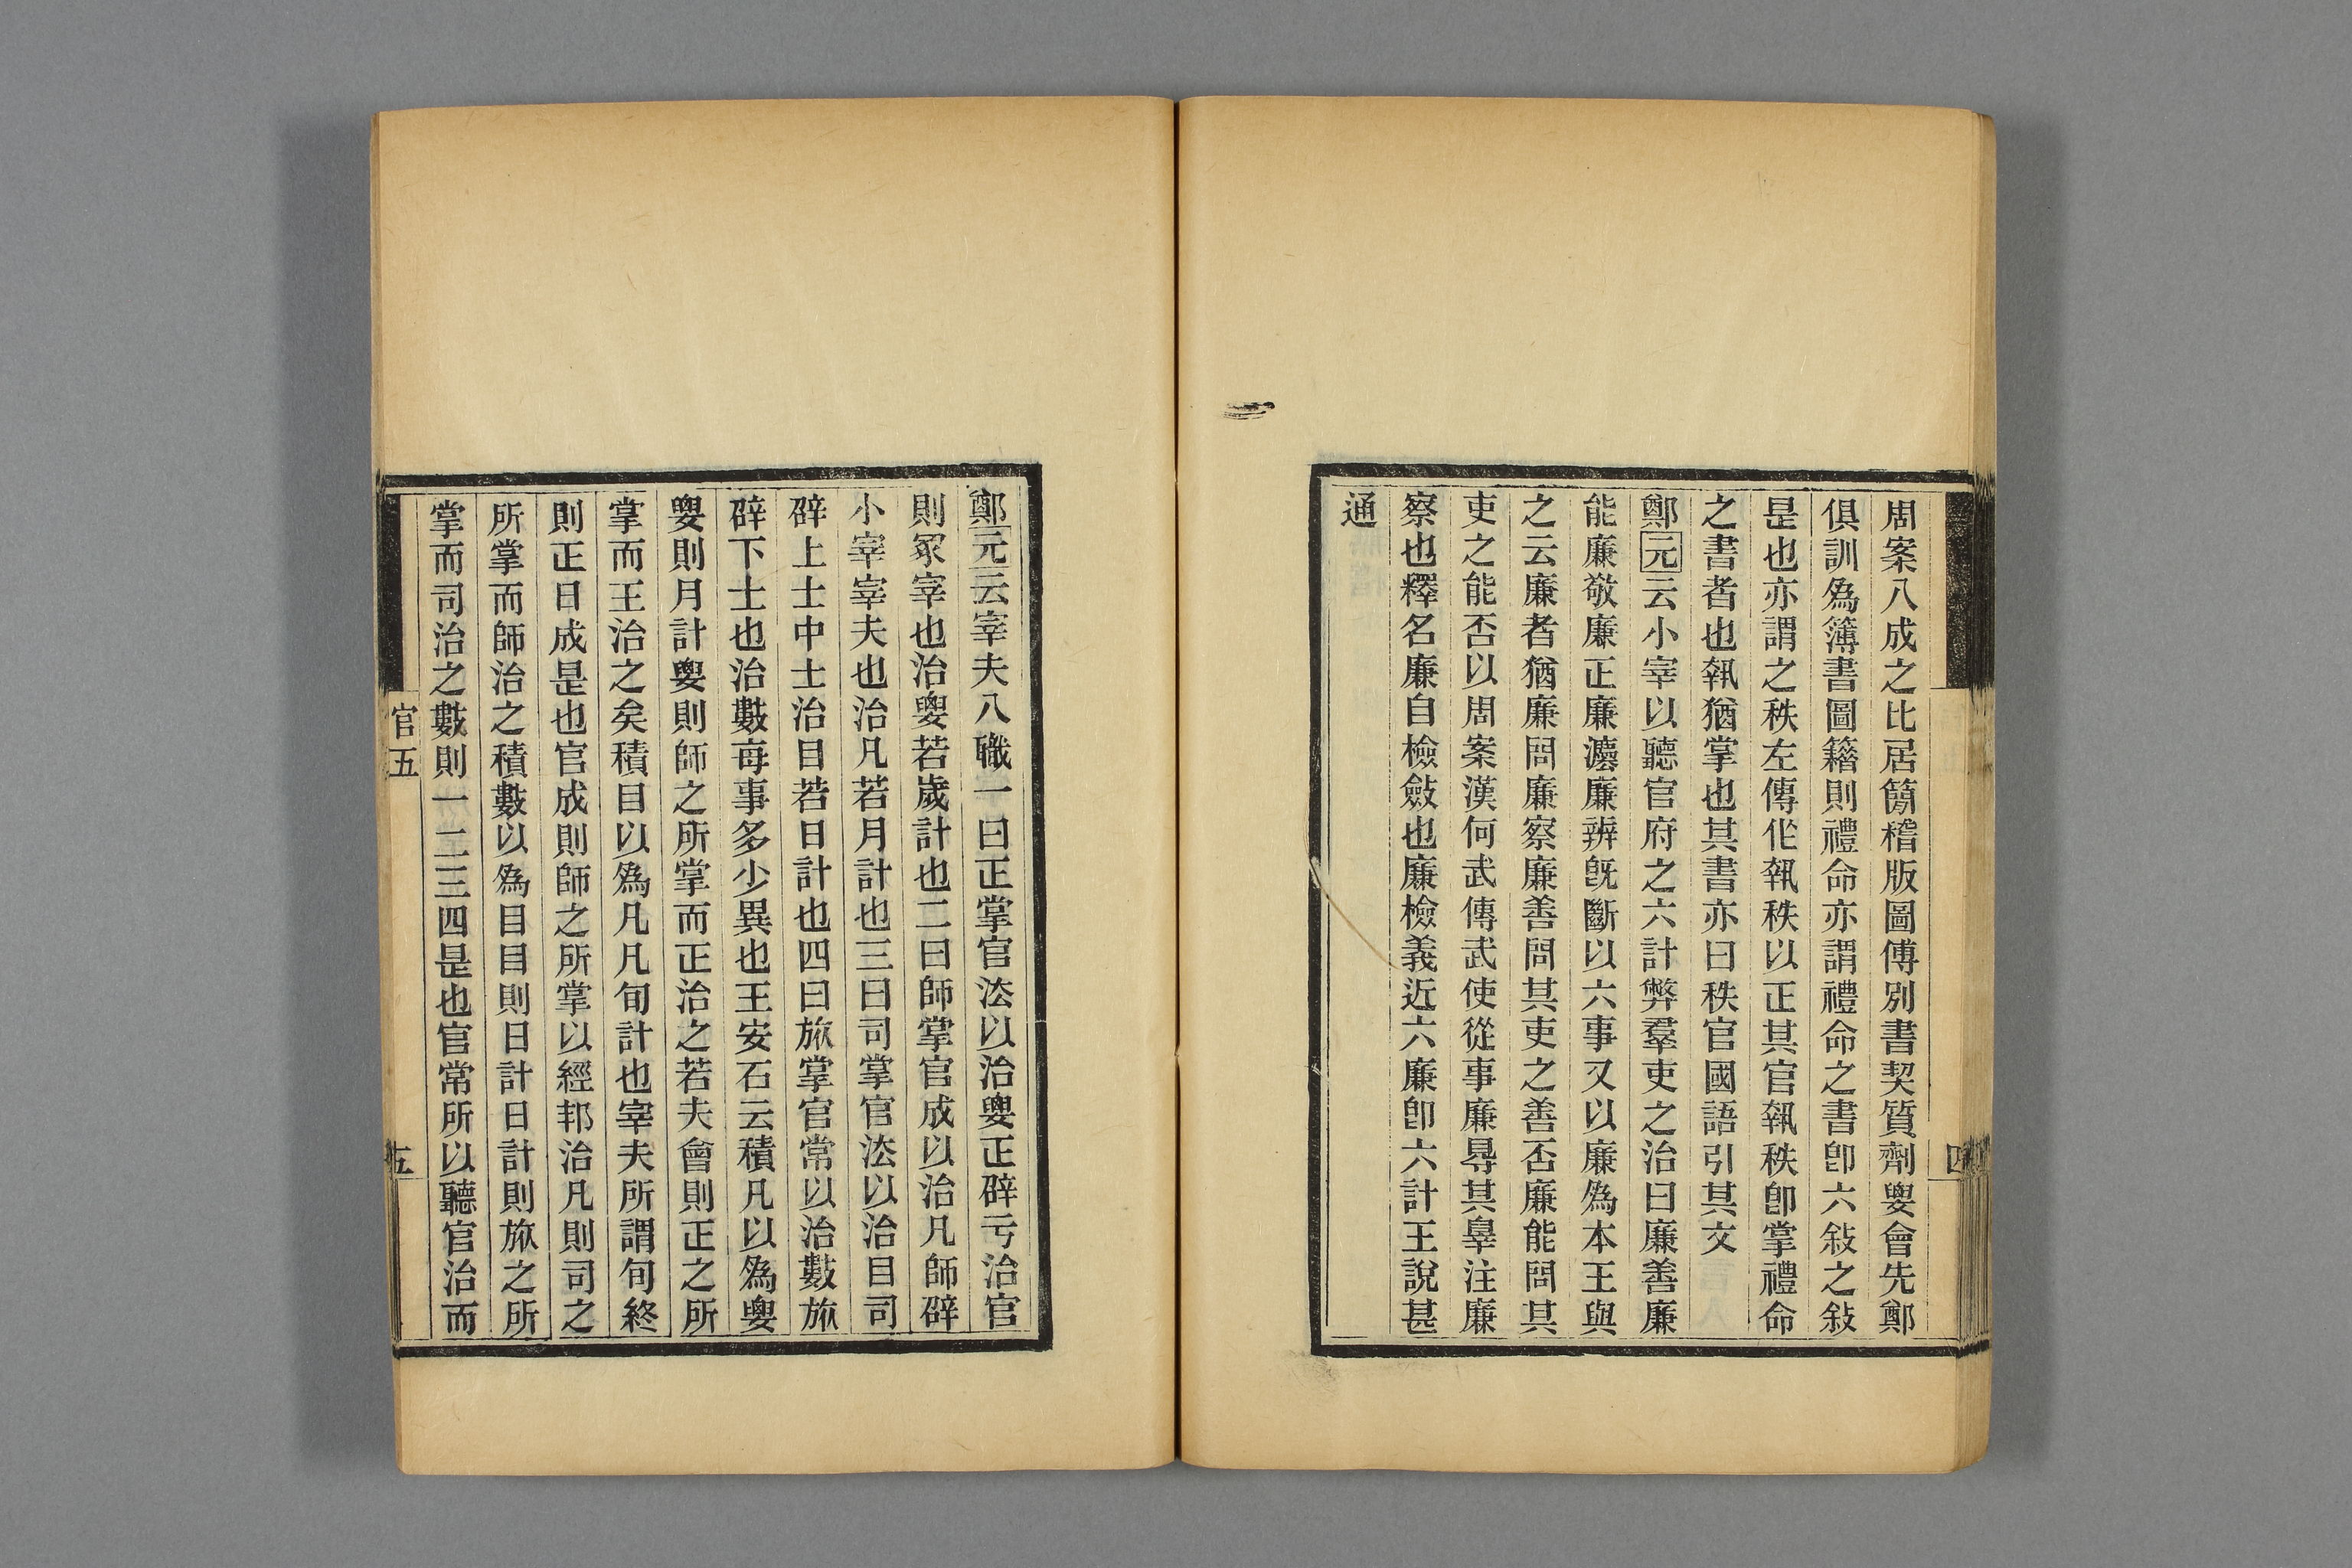 周案八成之比居簡稽版圖傅別書契質劑㚻會先鄭
俱訓爲簿書圖籍則禮命亦謂禮命之書卽六敍之敍
是也亦謂之秩左傳作執秩以正其官執秩卽掌禮命
之書者也執猶掌也其書亦曰秩官國語引其文
鄭元云小宰以聽官府之六計弊羣吏之治曰廉善廉
能廉敬廉正廉灋廉辨旣斷以六事又以廉爲本王與
之云廉者猶廉問廉察廉善問其吏之善否廉能問其
吏之能否以周案漢何武傳武使從事廉㝵其辠注廉
察也釋名廉自檢斂也廉檢義近六廉卽六計王說甚
通
四
鄭元云宰夫八職一曰正掌官法以治㚻正辟亏治官
則冢宰也治㚻若歲計也二曰師掌官成以治凡師辟
小宰宰夫也治凡若月計也三曰司掌官法以治目司
辟上士中士治目若日計也四曰旅掌官常以治數旅
辟下士也治數每事多少異也王安石云積凡以爲㚻
㚻則月計㚻則師之所掌而正治之若夫會則正之所
掌而王治之矣積目以爲凡凡旬計也宰夫所謂旬終
則正日成是也官成則師之所掌以經邦治凡則司之
所掌而師治之積數以爲目目則日計日計則旅之所
掌而司治之數則一二三四是也官常所以聽官治而
官五
五